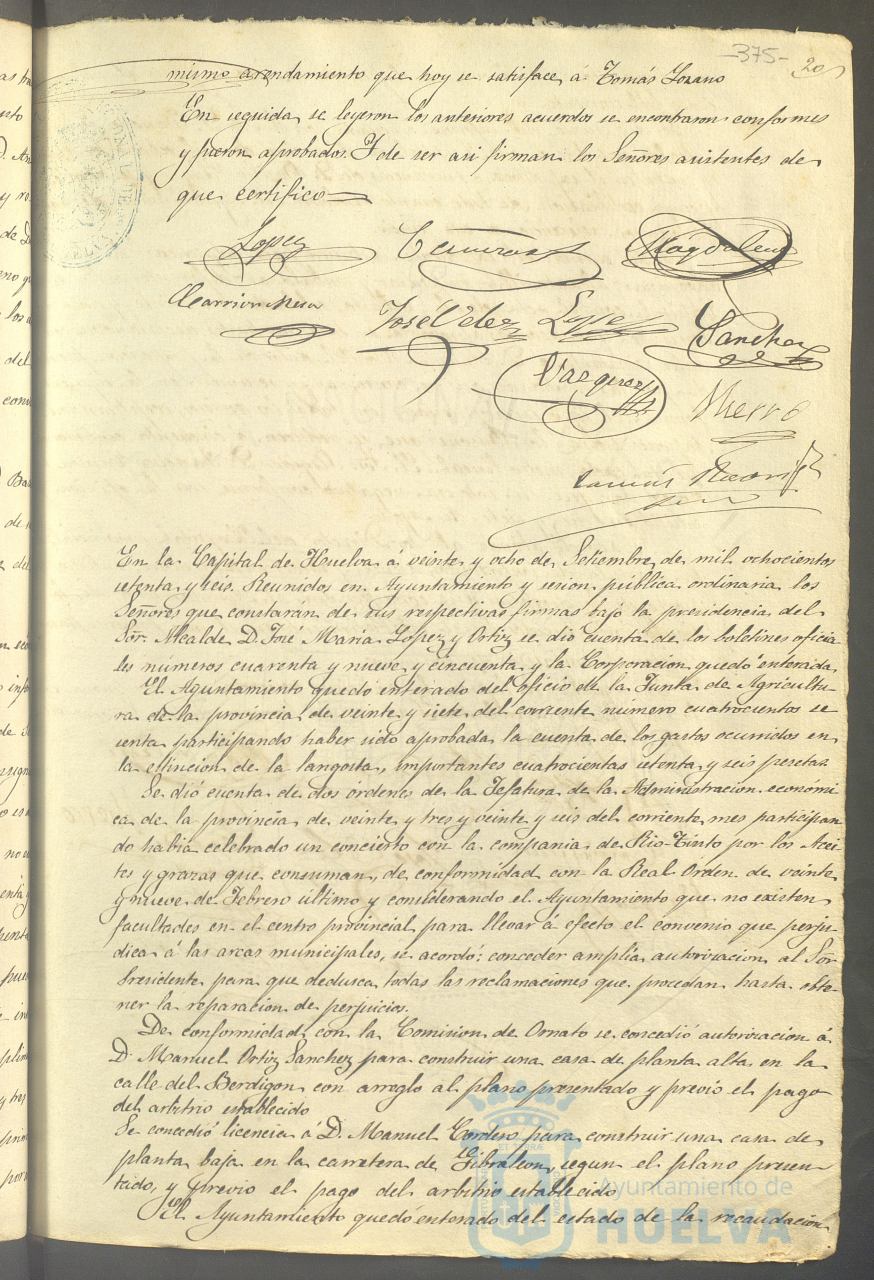 -375-
20
mismo arrendamiento que hoy se satisface á Tomás Lozano
En seguida se leyeron los anteriores acuerdos se encontraron conformes
y fueron aprobados. Y de ser asi firman los Señores asistentes de
que certifico
Lopez
Magdalena
José Velez
Lopez
Sanchez
Vazquez
Hierro
En la Capital de Huelva á veinte y ocho de Setiembre de mil ochocientos
setenta y seis. Reunidos en Ayuntamiento y sesion publica ordinaria los
Señores que constarán de sus respectivas firmas bajo la presidencia del
Sor. Alcalde D. José Maria Lopez y Ortiz se dió cuenta de los boletines oficia
les numeros cuarenta y nueve y cincuenta y la Corporacion quedó enterada
El Ayuntamiento quedó enterado del oficio de la Junta de Agricultu-
ra de la provincia de veinte y siete del corriente numero cuatrocientos se
senta participando haber sido aprobada la cuenta de los gastos ocurridos en
la estincion de la langosta, importantes cuatrocientas setenta y seis pesetas
Se dió cuenta de dos órdenes de la Jefatura de la Administracion económi
ca de la provincia de veinte y tres y veinte y seis del corriente mes participan
do habia celebrado un concierto con la compania de Rio-Tinto por los Acei-
tes y grazas que consuman, de conformidad con la Real Orden de veinte
y nueve de Febrero último y considerando el Ayuntamiento que no existen
facultades en el centro provincial para llevar á efecto el convenio que perju-
dica á las arcas municipales, se acordó: conceder amplia autorizacion al Sor
Presidente para que dedusca todas las reclamaciones que procedan hasta obte-
ner la reparacion de perjuicios.
De conformidad con la Comision de Ornato se concedió autorizacion á
D. Manuel Ortiz Sanchez para construir una casa de planta alta en la
calle del Berdigon con arreglo al plano presentado y previo el pago
del arbitrio establecido
Se concedió licencia á D. Manuel Cordero para construir una casa de
planta baja en la carretera de Gibraleon, segun el plano presen-
tado, y previo el pago del arbitrio establecido
El Ayuntamiento quedó enterado del estado de la recaudacion
Ayuntamiento de
HUELVA